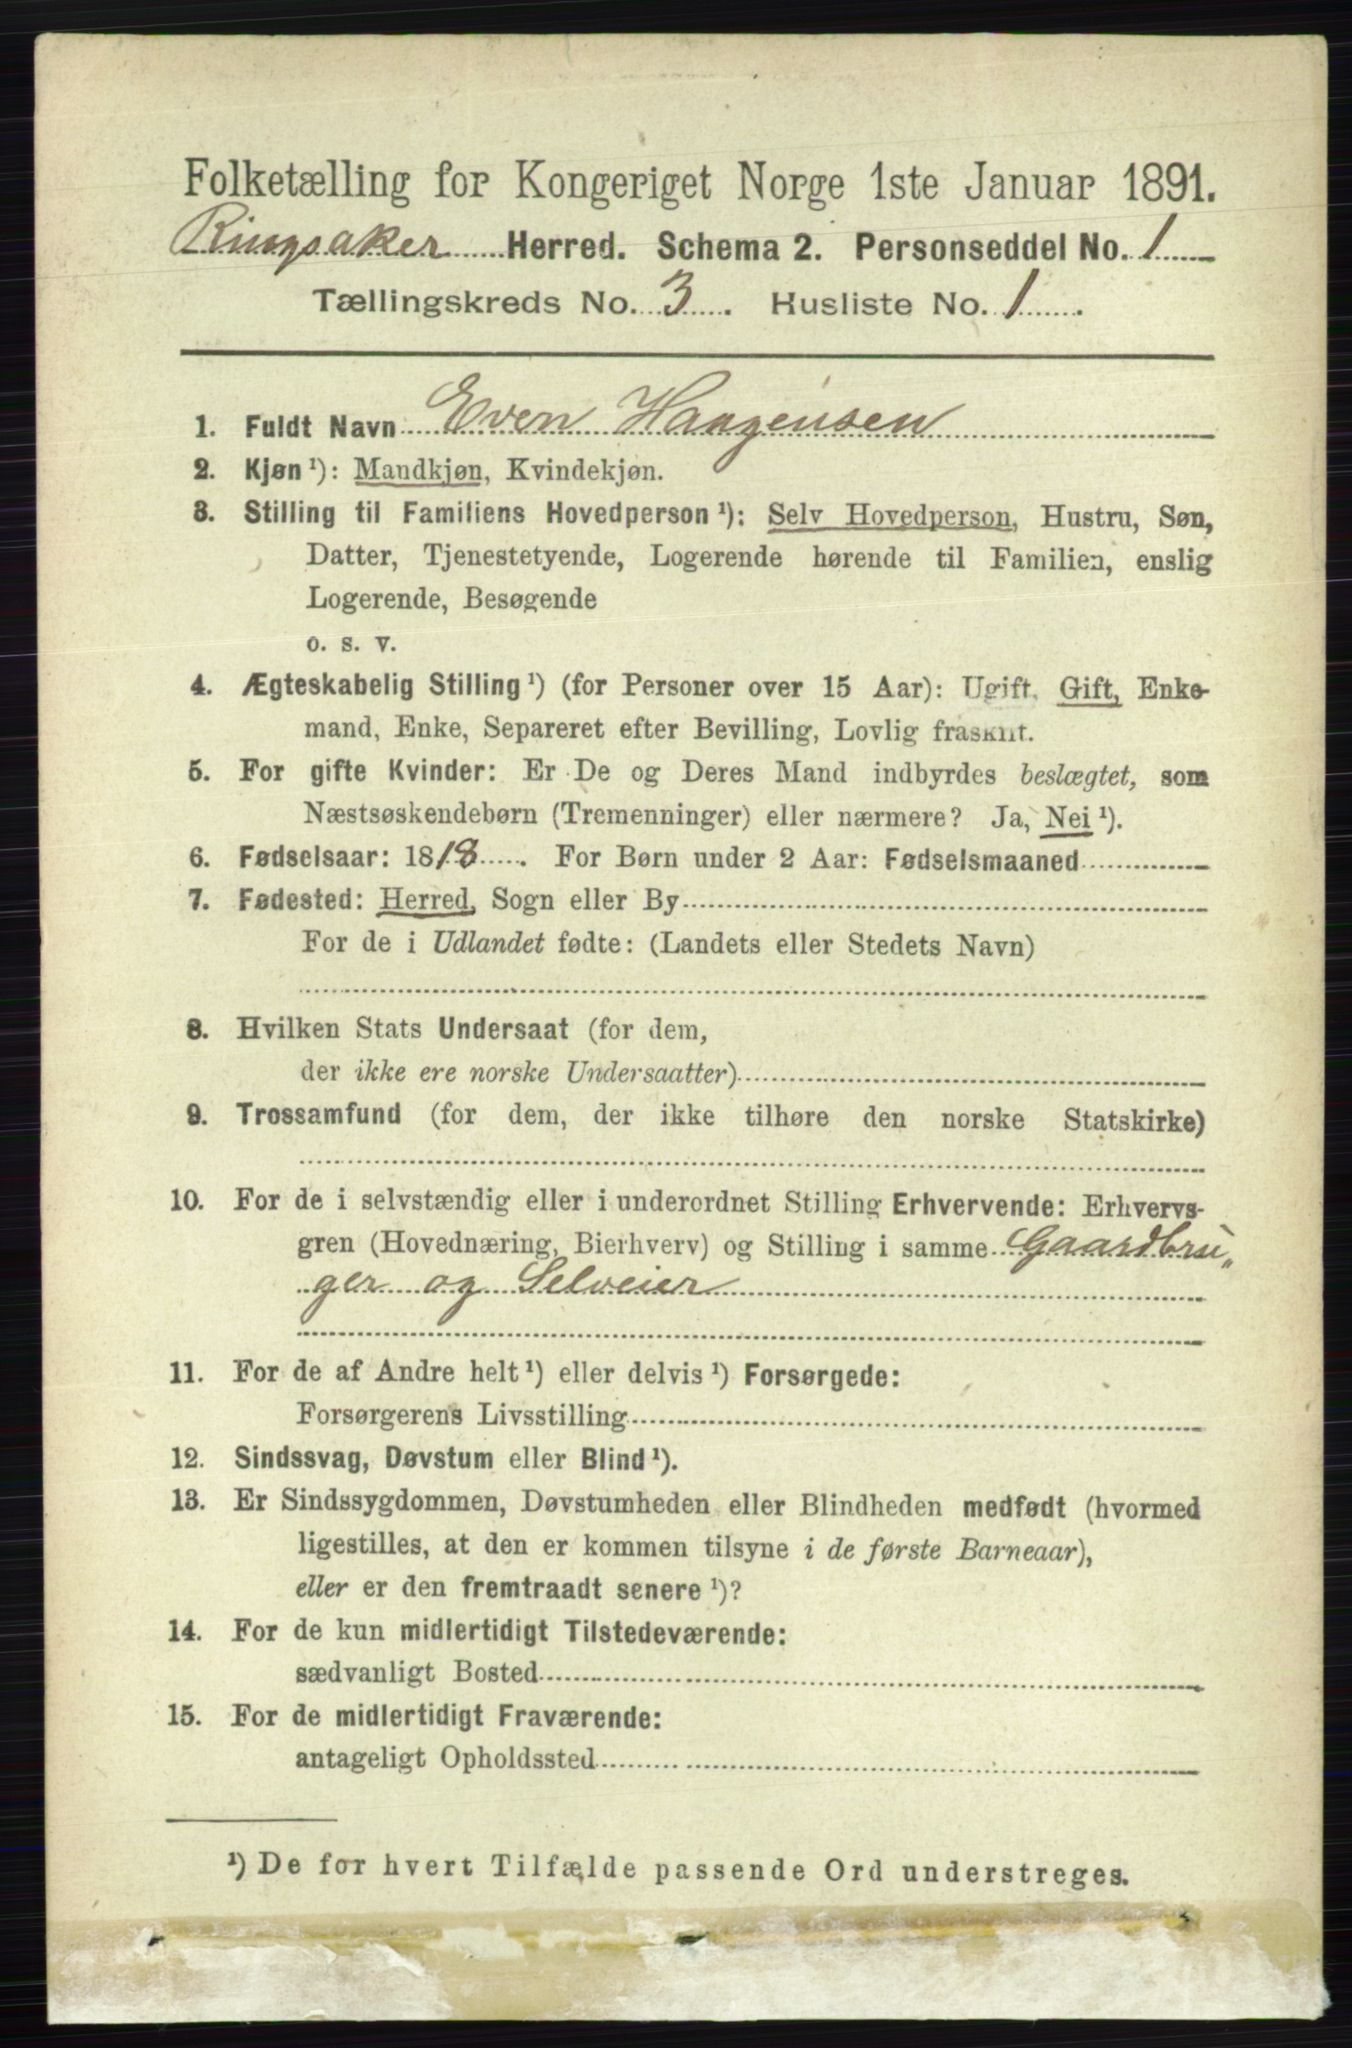 Folketælling for Kongeriget Norge 1ste Januar 1891.
Ringsaker Herred. Schema 2. Personseddel No. 1
Tællingskreds No. 3. Husliste No. 1.
1. Fuldt Navn Even Haagensen
2. Kjøn ¹): Mandkjøn, Kvindekjøn.
3. Stilling til Familiens Hovedperson ¹): Selv Hovedperson, Hustru, Søn,
Datter, Tjenestetyende, Logerende hørende til Familien, enslig
Logerende, Besøgende
o. s. v.
4. Ægteskabelig Stilling ¹) (for Personer over 15 Aar): Ugift, Gift, Enke-
mand, Enke, Separeret efter Bevilling, Lovlig fraskilt.
5. For gifte Kvinder: Er De og Deres Mand indbyrdes beslægtet, som
Næstsøskendebørn (Tremenninger) eller nærmere? Ja, Nei ¹).
6. Fødselsaar: 1818. For Børn under 2 Aar: Fødselsmaaned
7. Fødested: Herred, Sogn eller By
For de i Udlandet fødte: (Landets eller Stedets Navn)
8. Hvilken Stats Undersaat (for dem,
der ikke ere norske Undersaatter)
9. Trossamfund (for dem, der ikke tilhøre den norske Statskirke)
10. For de i selvstændig eller i underordnet Stilling Erhvervende: Erhvervs-
gren (Hovednæring, Bierhverv) og Stilling i samme Gaardbru„
ger og Selveier
11. For de af Andre helt ¹) eller delvis ¹) Forsørgede:
Forsørgerens Livsstilling
12. Sindssvag, Døvstum eller Blind ¹).
13. Er Sindssygdommen, Døvstumheden eller Blindheden medfødt (hvormed
ligestilles, at den er kommen tilsyne i de første Barneaar),
eller er den fremtraadt senere ¹)?
14. For de kun midlertidigt Tilstedeværende:
sædvanligt Bosted
15. For de midlertidigt Fraværende:
antageligt Opholdssted
¹) De for hvert Tilfælde passende Ord understreges.